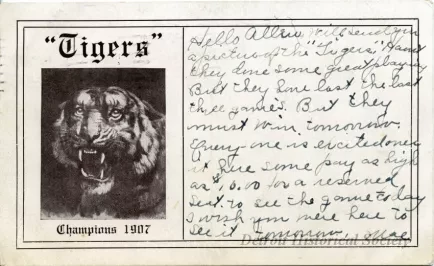 "Tigers"
Champions 1907
Hello Allen Will send you
a picture of the "Tigers" Havnt
they done some great playing
But they have lost the last
three games. But they
must win tomorrow.
Every one is excited over
it here some pay as high
as $10.00 for a reserved
Seat. to see the game today
I wish you were here to
see it tomorrow.
Detroit Historical Society